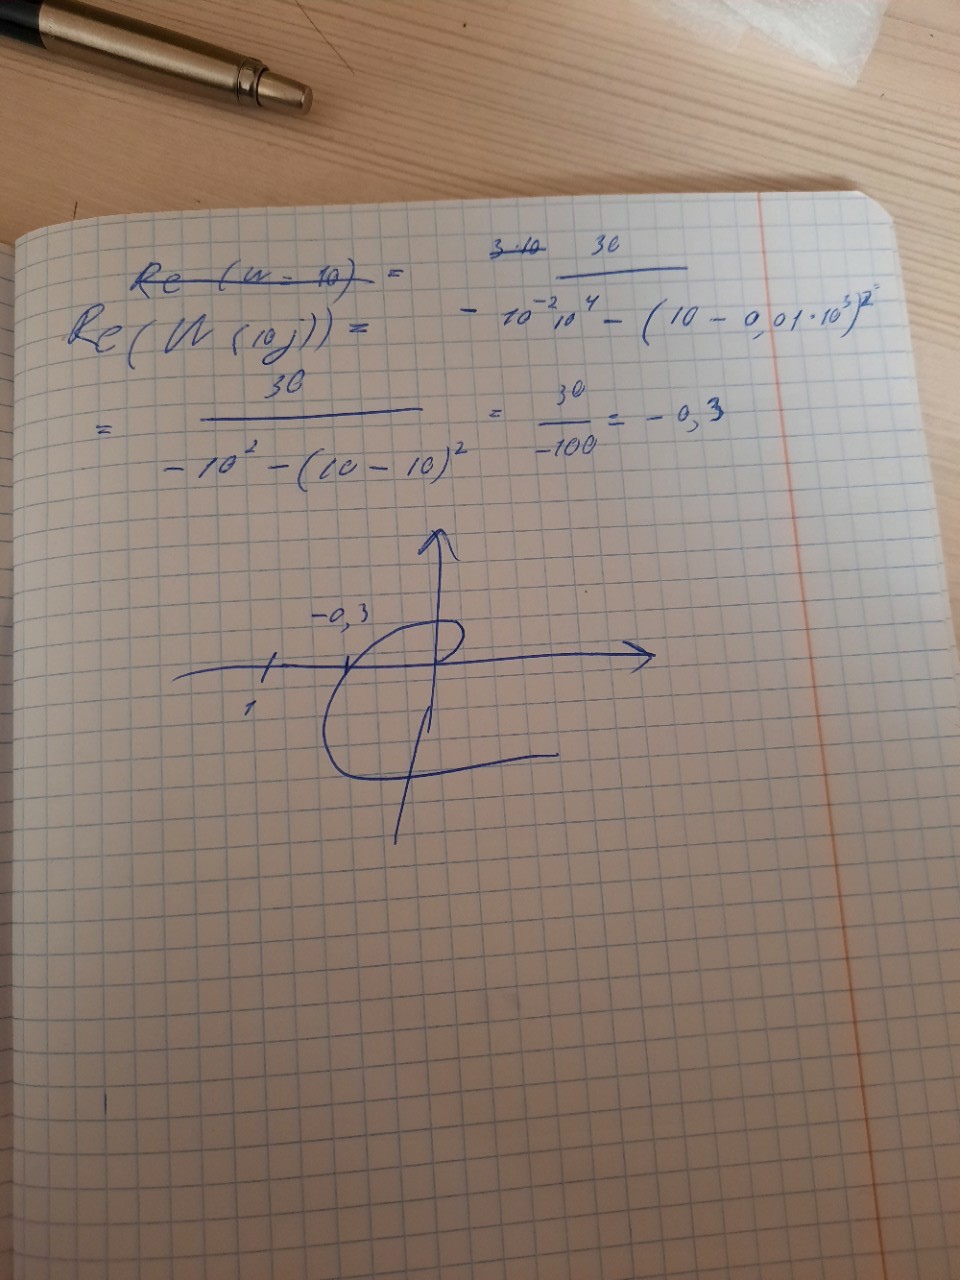 Re (W = 10) = 3·10 30
Re(W(10j)) = - 10⁻²10⁴ - (10 - 0,01·10³)² =
= 30 / -10² - (10 - 10)² = 30 / -100 = -0,3
-0,3
1